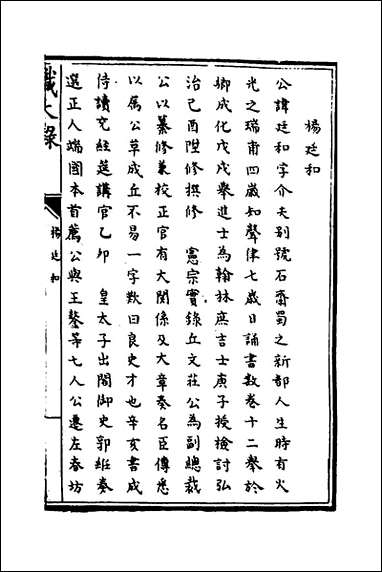 楊廷和
公諱廷和字介夫別號石齋蜀之新都人生時有火
光之瑞甫四歲知聲律七歲日誦書數卷十二舉於
鄉成化戊戌舉進士為翰林庶吉士庚子授檢討弘
治己酉陞修撰修　憲宗實錄丘文莊公為副總裁
公以纂修兼校正官有大關係及大章奏名臣傳悉
以属公草成丘不易一字歎曰良史才也辛亥書成
侍讀充經筵講官乙卯　皇太子出閣御史郭維奏
選正人端國本首薦公與王鏊等七人公遷左春坊
識大錄
楊廷和